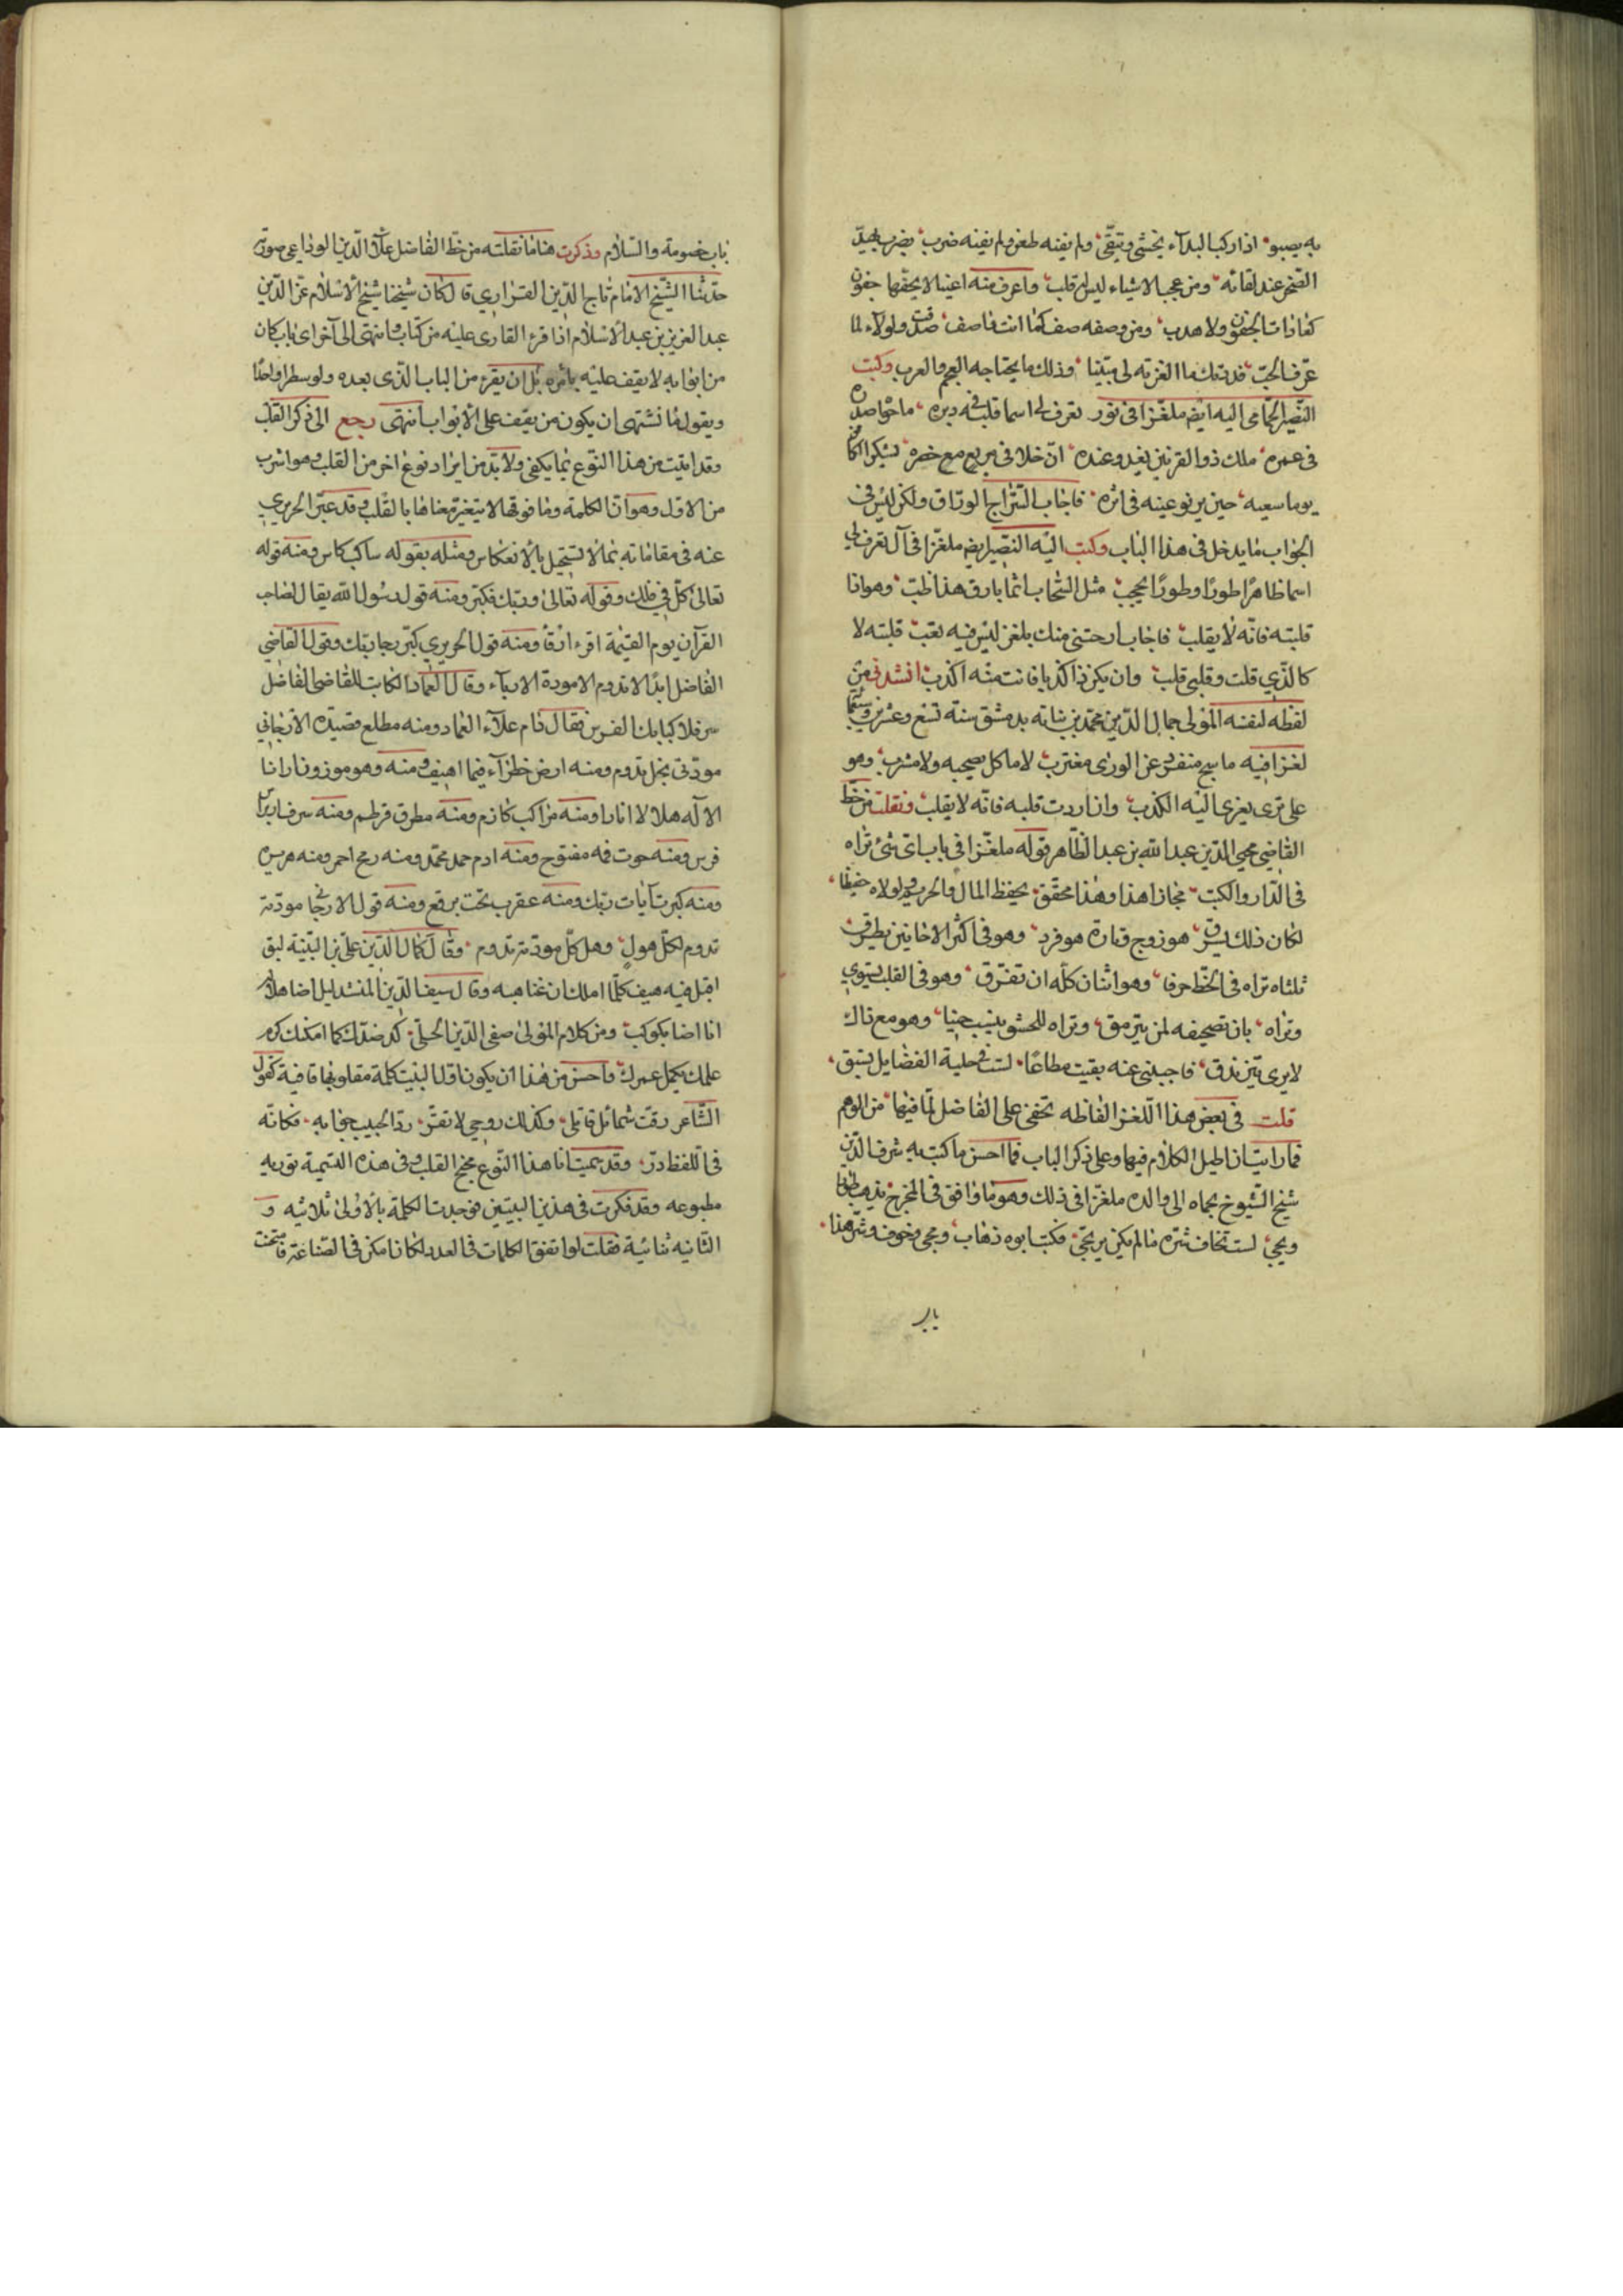 به يصبو اذا ركب البيداء يخشى ويتقى ولم يفنه طعن ولم يفنه ضرب بضرب يهد
الصخر عند لقائه ومن عجب الاشياء ليس له قلب واعرف منه اعينا لا يحفها جفون
كعادات الجفون ولا هدب ومن وصفه صف كما انت ناصف صدقت ولولاه لما
عرف الحب فدتك ما الغزته لى مبينا وذلك ما يحتاجه العجم والعرب وكتب
النصير الحمامى اليه ايضا ملغزا فى نور تعرف لى اسما قلبه فى دبره ما حق اصدق
فى عمره ملك ذو القرنين يغدو عنده ان خلا فى مربع مع خضره يشكر
يوما سعيه حين يرنو عينه فى اثره فاجاب السراج الوراق ولكن ليس فى
الجواب ما يدخل فى هذا الباب وكتب اليه النصير ايضا ملغزا فى آل تعرف لى
اسما ظاهرا طورا وطورا يحجب مثل السحاب انما بارق هذا خلب وهو اذا
قلبته فانه لا يقلب فاجاب ارحتنى منك بلغز ليس فيه تعب قلبته لا
كالذى قلت وقلبى قلب وان يكن ذا كذبا فانت منه اكذب انشدنى من
لفظه لنفسه المولى جمال الدين محمد بن نباته بدمشق سنة تسع وعشرين وسبعمائة
لغزا فيه ما سبح منفرد عن الورى مغترب لا ماكل يصحبه ولا مشرب وهو
على ترى يعزى اليه الكذب وان اردت قلبه فانه لا يقلب ونقلت من خط
القاضى محيى الدين عبد الله بن عبد الظاهر قوله ملغزا فى باب اى شئ تراه
فى الدار والكتب مجازا هذا وهذا محقق يحفظ المال والحريم ولولاه حفيظا
لكان ذلك يسرق هو زوج وتارة هو فرد وهو فى اكثر الاحايين يطرق
ثلثاه تراه فى الخط حرفا وهو اثنان كله ان تفرق وهو فى القلب يستوى
وتراه بان تصحيفه لمن يترمق وتراه للحشو ينسب حينا وهو مع ذاك
لا يرى يتزندق فاجبنى عنه بقيت مطاعا لست فى حلبة الفضايل تسبق
قلت فى بعض هذا اللغز الفاظه تخفى على الفاضل لما فيها من الوهم
فما رايت ان اطيل الكلام فيها وعلى ذكر الباب فما احسن ما كتب به شرف الدين
شيخ الشيوخ بحماه الى والده ملغزا فى ذلك وهو ما واقف فى المخرج يذهب طورا
ويجئ لست تخاف شره ما لم يكن يرتج فكتب ابوه ذهاب ومجى وخوف وشر هذا
باب
باب خصومة والسلام وذكرت هنا ما نقلته من خط الفاضل علاء الدين الوداعى صورته
حدثنا الشيخ الامام تاج الدين الفزارى قال كان شيخنا شيخ الاسلام عز الدين
عبد العزيز بن عبد السلام اذا قرء القارى عليه من كتاب وانتهى الى آخر اى باب كان
من ابوابه لا يقف عليه يأمره بل ان يقرء من الباب الذى بعده ولو سطرا واحدا
ويقول ما نشتهى ان يكون من يقف على الابواب انتهى رجع الى ذكر القلب
وقد اتيت من هذا النوع بما يكفى ولا بد من ايراد نوع اخر من القلب وهو اشرب
من الاول وهو ان الكلمة وما فوقها لا يتغير معناها بالقلب وقد عبر الحريرى
عنه فى مقاماته بما لا يستحيل بالانعكاس ومثله بقوله ساكب كاس ومنه قوله
تعالى كل فى فلك وقوله تعالى وربك فكبر ومنه قول رسول الله يقال لصاحب
القرآن يوم القيمة اقرء ارقأ ومنه قول الحريرى كبر رجا ربك وقول القاضى
الفاضل ابدا لا تدوم الا مودة الادباء وقال العماد الكاتب للقاضى الفاضل
سر فلا كبا بك الفرس فقال دام علاء العماد ومنه مطلع قصيدة الارجانى
مودتى بخل تدوم ومنه ارض خضراء فيها اهيف ومنه وهو موزون ارانا
الاله هلالا انارا ومنه مراكب كارم ومنه مطرق قرطم ومنه
فرس ومنه حوت فمه مفتوح ومنه ادم حمد محمد ومنه رمح احمر ومنه
ومنه كبرت آيات ربك ومنه عقرب تحت برقع ومنه قول الارجانى مودته
تدوم لكل هول وهل كل مودته تدوم وقال كمال الدين على بن النبيه لبق
اقبل فيه هيف كلما املك ان غنا هبه وقال سيف الدين المشد ليل اضا هلاله
انا اضا بكوكب ومن كلام المولى صفى الدين الحلى كد ضدك كما امكنك كرم
علمك يكمل عمرك واحسن من هذا ان يكون اول البيت كلمة مقلوبها قافية كقول
الشاعر رقت شمائل قاتلى فلذلك روحى لا تقر رد الحبيب جوابه فكانه
فى اللفظ در وقد سميت انا هذا النوع مجنح القلب وفى هذه التسمية توريه
مطبوعه وقد فكرت فى هذين البيتين فوجدت الكلمة بالاولى ثلاثيه و
الثانيه ثنائية فقلت لو اتفق الكلمات فى العدد لكان امكن فى الصناعة